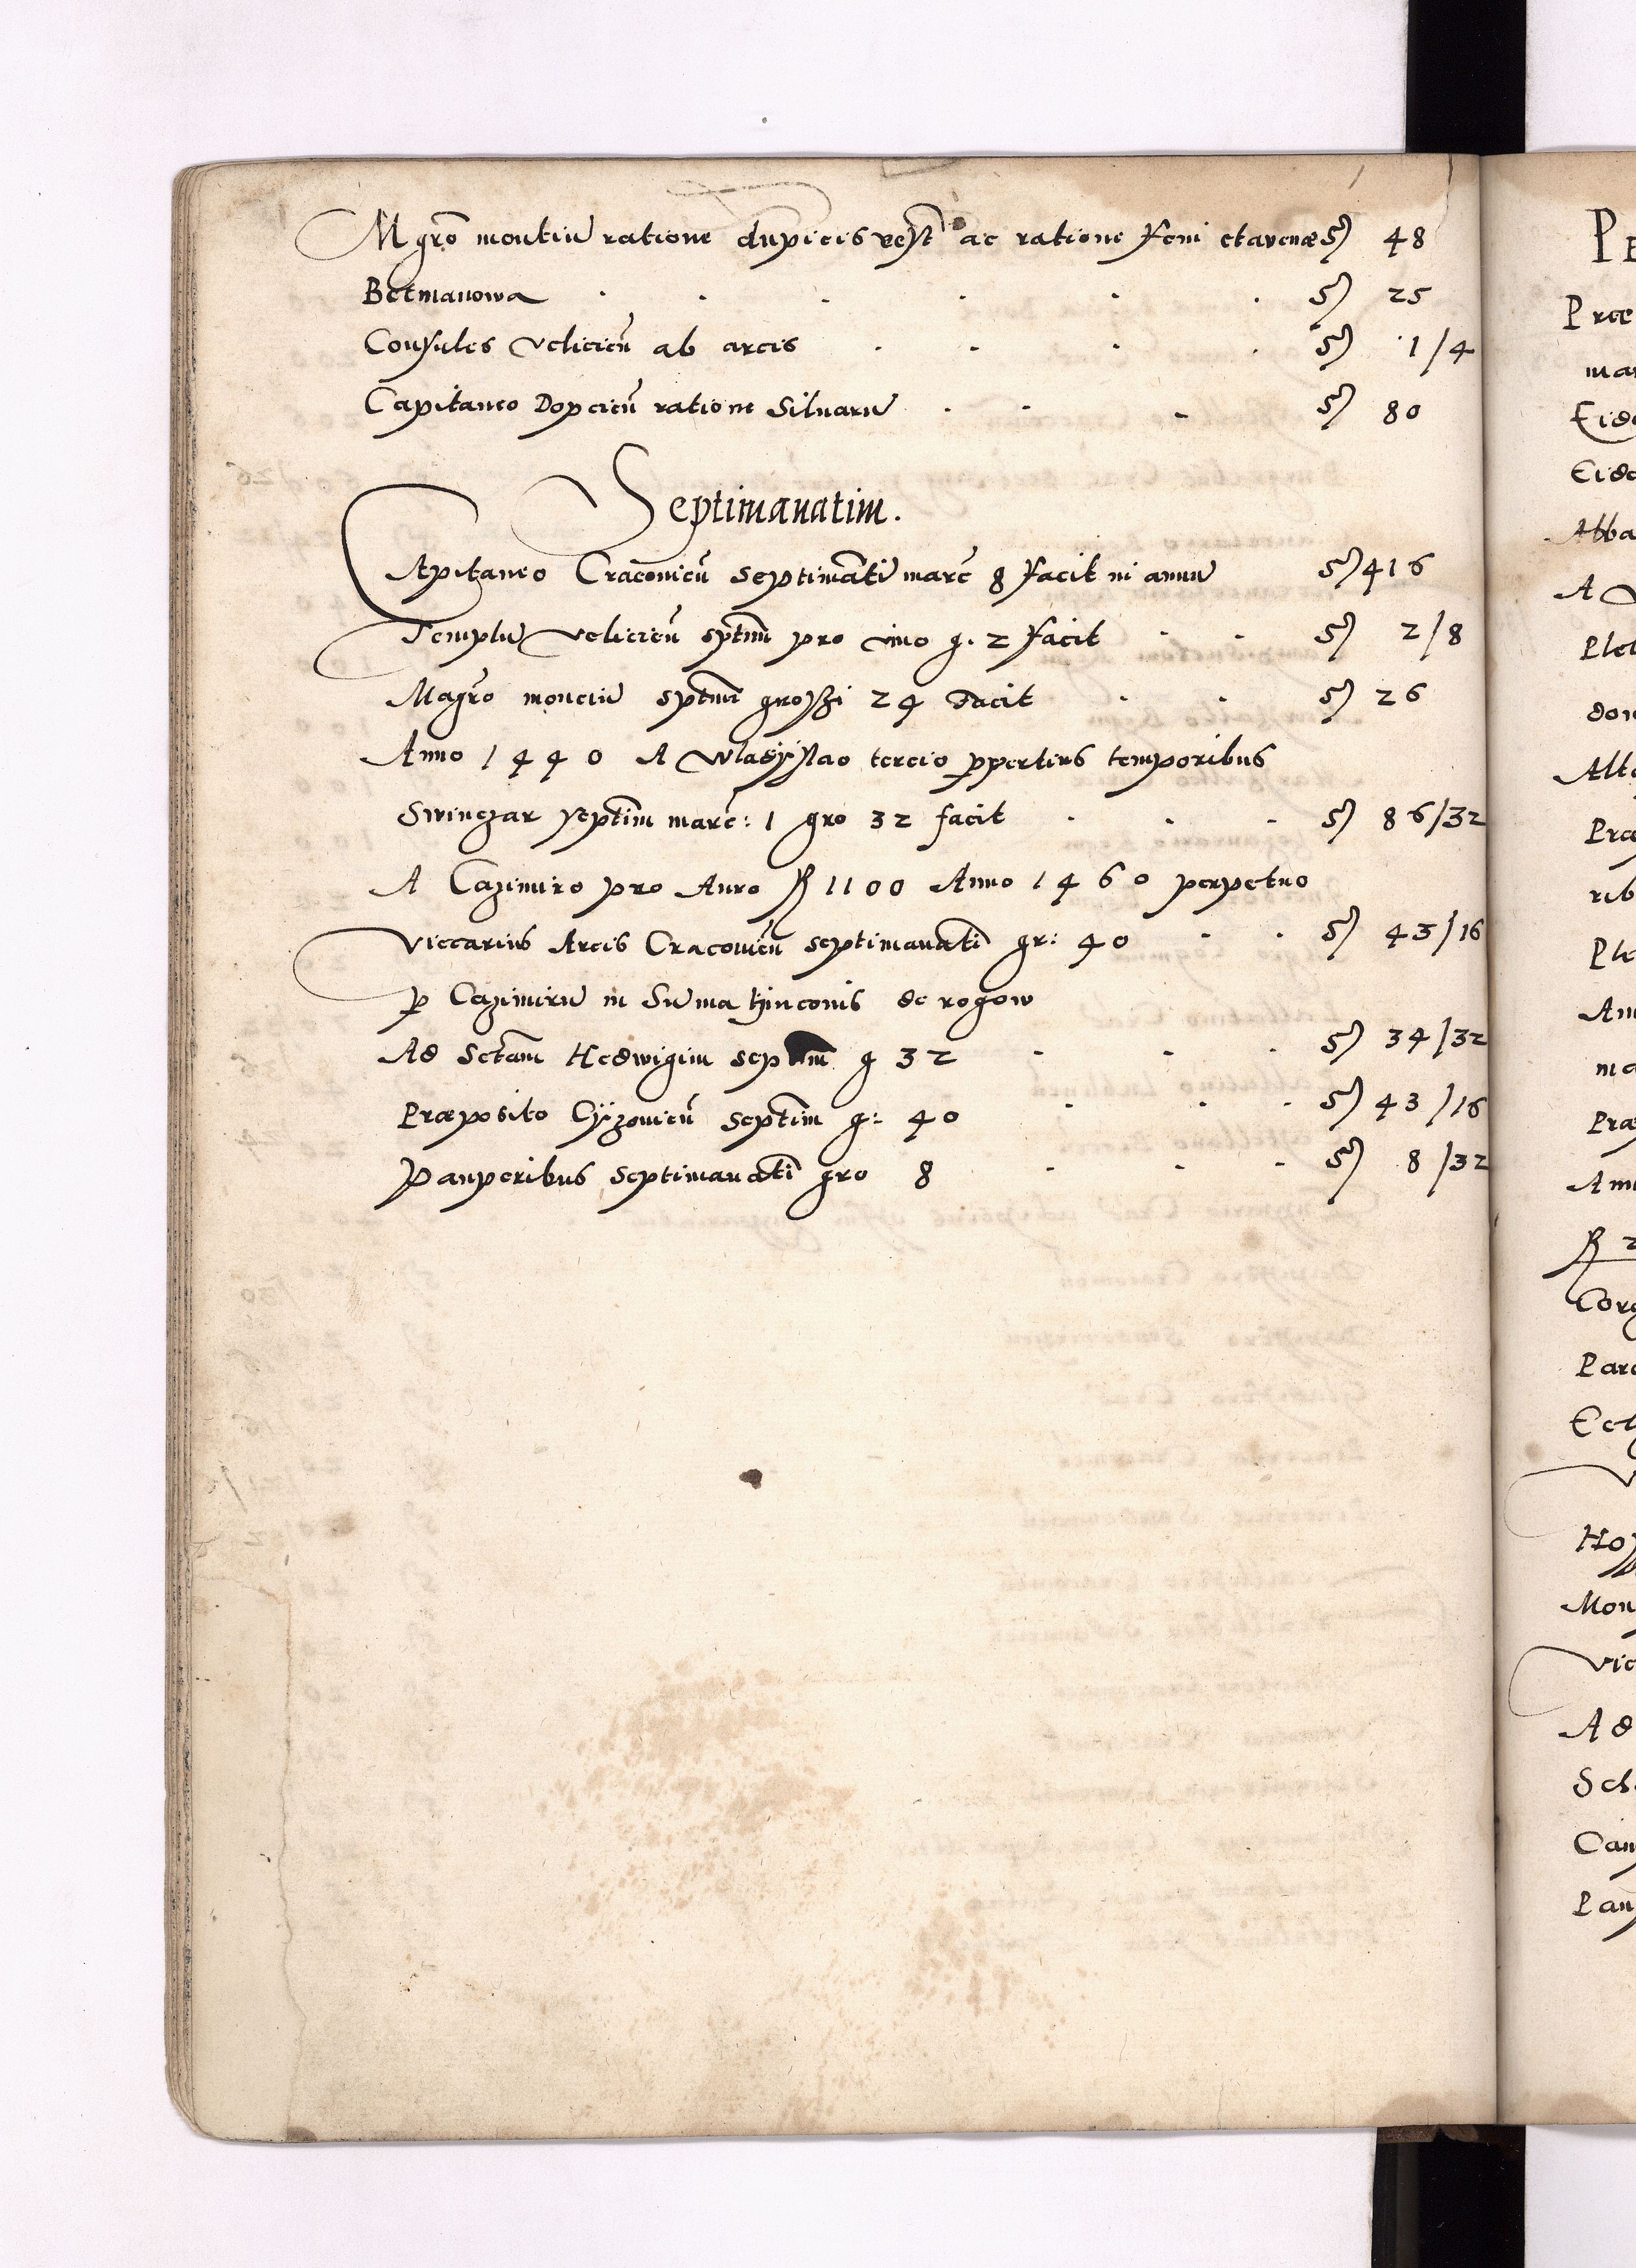 Mgrō montiū ratione dupicis vest ac ratione feni et avenæ 48
Betmanowa . . . . . . 25
Consules veliciēn̄ ab arcis . . . . 1/4
Capitaneo Dopciēn̄ ratione siluarū . . . 80
Septimanatim.
Capitaneo Cracoviēn̄ septimātī marc̄ 8 facit in annū 416
Templū veliciēn̄ sptim̄ pro vino g. 2 facit . . 2/8
Magrō monciū sptim̄ grossi 24 facit . . 26
Anno 1440 A Wladislao tercio ppertius temporibus
Swinczar septim̄ marc̄: 1 gro 32 facit . . . 86/32
A Cazimiro pro Auro 1100 Anno 1460 perpetuo
Viccarius Arcis Cracoviēn̄ septimanatī gr: 40 . . 43/16
p Cazimirū in Sūma hinconis de rogow
Ad Sctam Hedwigim septim̄ g 32 . . . 34/32
Præposito Cyzoviēn̄ septim̄ g: 40 . . . 43/16
Pauperibus septimanatī gro 8 . . . 8/32
Præ
mar
Eide
Eide
Abba
Alt
Præ
rib
Præ
Parc
Hos
Mon
Vic
Ad
Pau